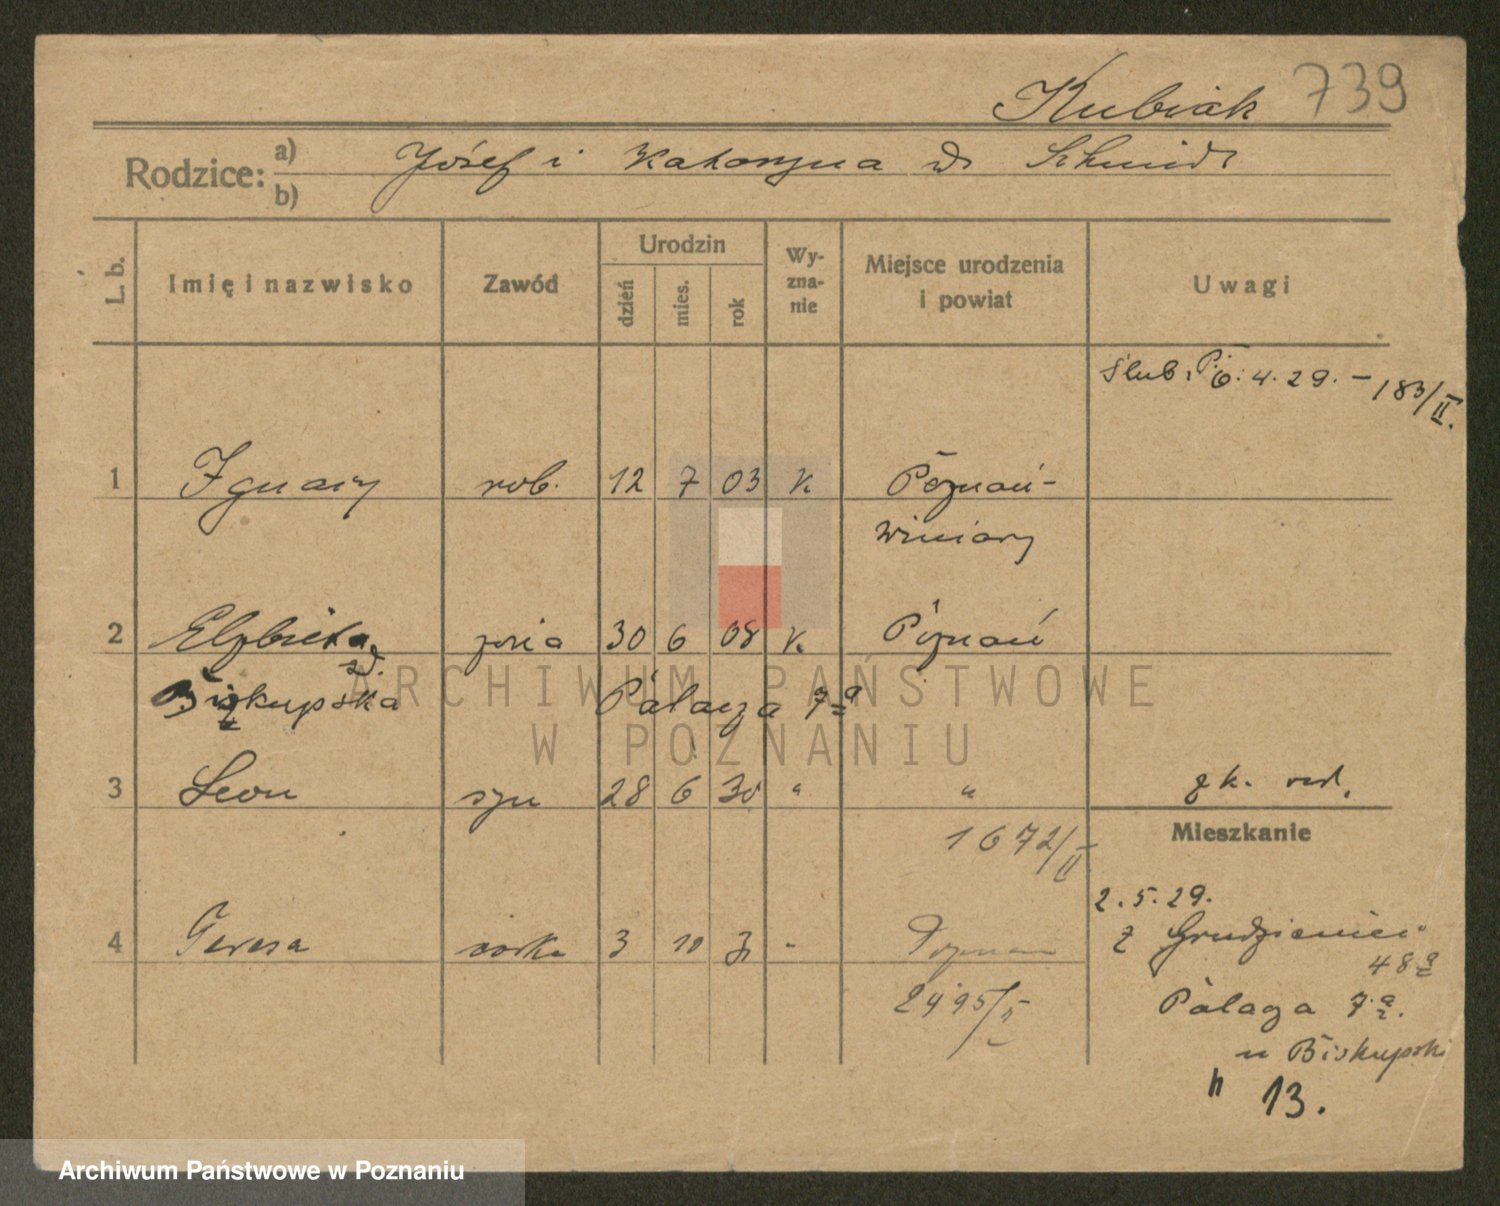 Kubiak 739
Rodzice: a) Józef i Katarzyna dr Schmidt
b)
L. b. Imię i nazwisko Zawód Urodzin dzień mies. rok Wyznanie Miejsce urodzenia i powiat Uwagi
Ślub: P. 6.4.29. – 183/II.
1 Ignacy rob. 12 7 03 K Poznań-
Winiary
2 Elżbieta żona 30 6 08 K Poznań
zd.
Biskupska Palacza 7a
3 Leon syn 28 6 30 " "
1672/II
Mieszkanie
2.5.29.
4 Teresa córka 3 10 31 - Poznań
z Grudzieniec
48a
2495/II
Palacza 7a.
u Biskupski
" 13.
ARCHIWUM PAŃSTWOWE
W POZNANIU
Archiwum Państwowe w Poznaniu